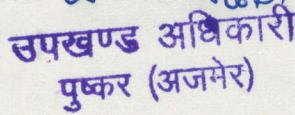 उपखण्ड अधिकारी
पुष्कर (अजमेर)